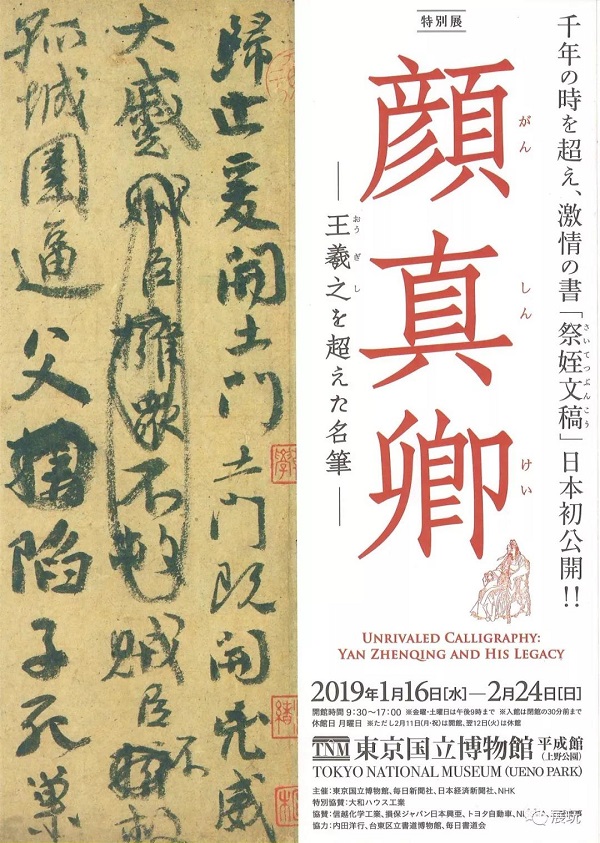 特別展
千年の時を超え、激情の書「祭姪文稿」日本初公開!!
さいてつぶんこう
顔真卿
がん しん けい
―王羲之を超えた名筆―
おう ぎ し
UNRIVALED CALLIGRAPHY:
YAN ZHENQING AND HIS LEGACY
2019年1月16日[水]―2月24日[日]
開館時間 9:30〜17:00 ※金曜・土曜日は午後9時まで ※入館は閉館の30分前まで
休館日 月曜日 ※ただし2月11日(月・祝)は開館、翌12日(火)は休館
TNM 東京国立博物館 平成館
(上野公園)
TOKYO NATIONAL MUSEUM (UENO PARK)
主催:東京国立博物館、毎日新聞社、日本経済新聞社、NHK
特別協賛:大和ハウス工業
協賛:信越化学工業、損保ジャパン日本興亜、トヨタ自動車、
協力:内田洋行、台東区立書道博物館、毎日書道会
展玩
歸止爰開土門土門既開兇威
大蹙賊臣擁衆不救賊臣不
孤城圍逼父陷子死巢